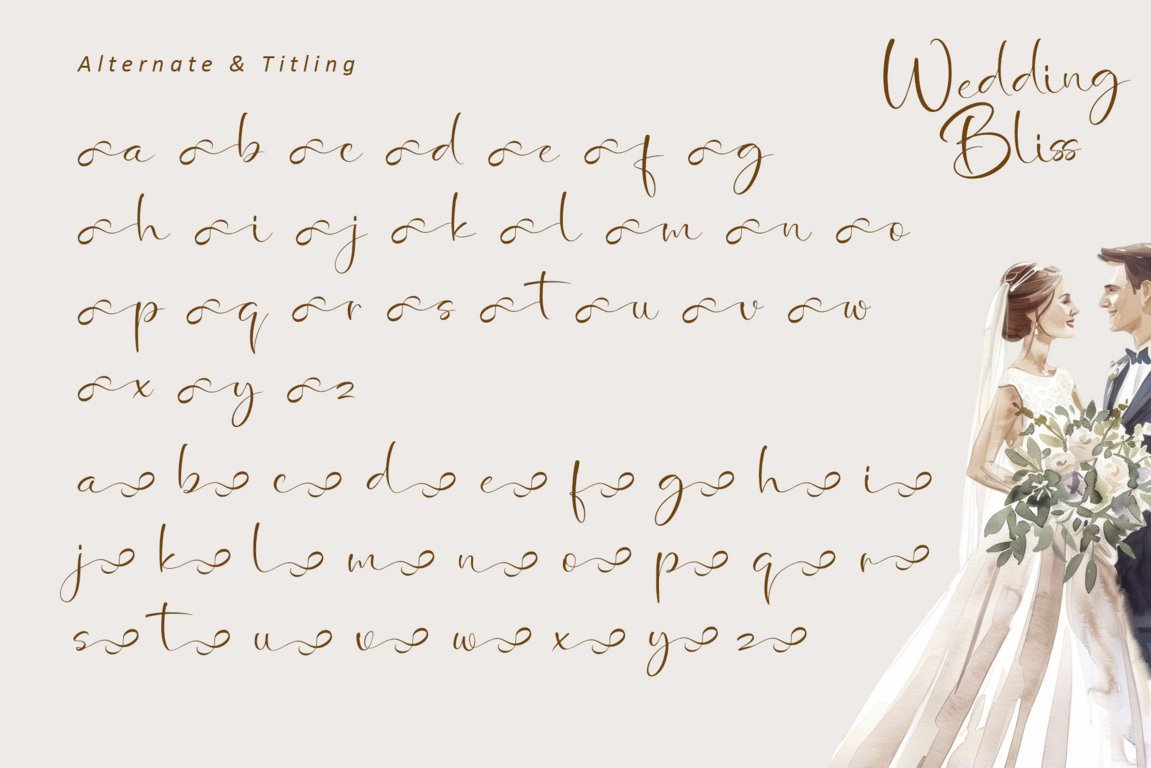 Alternate & Titling
Wedding
Bliss
a b c d e f g
h i j k l m n o
p q r s t u v w
x y z
a b c d e f g h i
j k l m n o p q r
s t u v w x y z